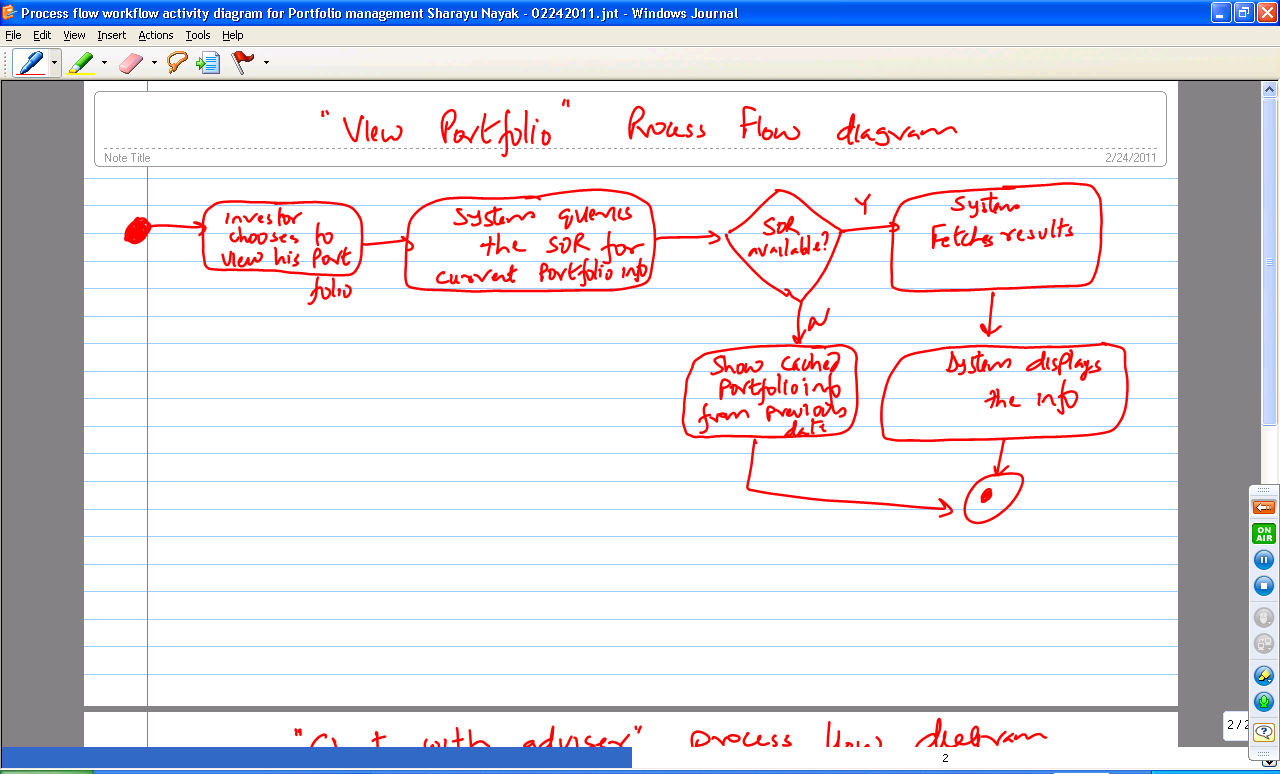 Process flow workflow activity diagram for Portfolio management Sharayu Nayak - 02242011.jnt - Windows Journal
File Edit View Insert Actions Tools Help
"View Portfolio" Process Flow diagram
Note Title
2/24/2011
investor
chooses to
view his Port
folio
System queries
the SOR for
current Portfolio info
SOR
available?
Y
System
Fetches results
N
Show cached
Portfolio info
from previous
date
System displays
the info
ON
AIR
2 / 2
"Chat with adviser" process flow diagram
2